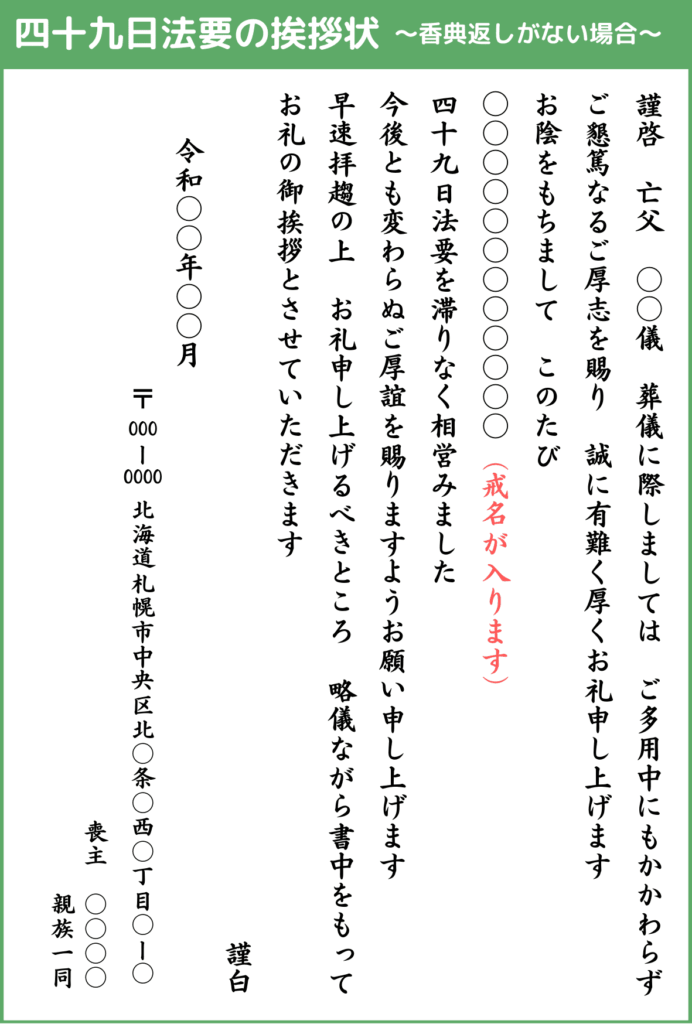 四十九日法要の挨拶状 〜香典返しがない場合〜
謹啓　亡父　〇〇儀　葬儀に際しましては　ご多用中にもかかわらず
ご懇篤なるご厚志を賜り　誠に有難く厚くお礼申し上げます
お陰をもちまして　このたび
〇〇〇〇〇〇〇〇〇〇〇〇（戒名が入ります）
四十九日法要を滞りなく相営みました
今後とも変わらぬご厚誼を賜りますようお願い申し上げます
早速拝趨の上　お礼申し上げるべきところ　略儀ながら書中をもって
お礼の御挨拶とさせていただきます
謹白
令和〇〇年〇〇月
〒000ー0000　北海道札幌市中央区北〇条〇西〇丁目〇ー〇
喪主　〇〇〇〇
親族一同